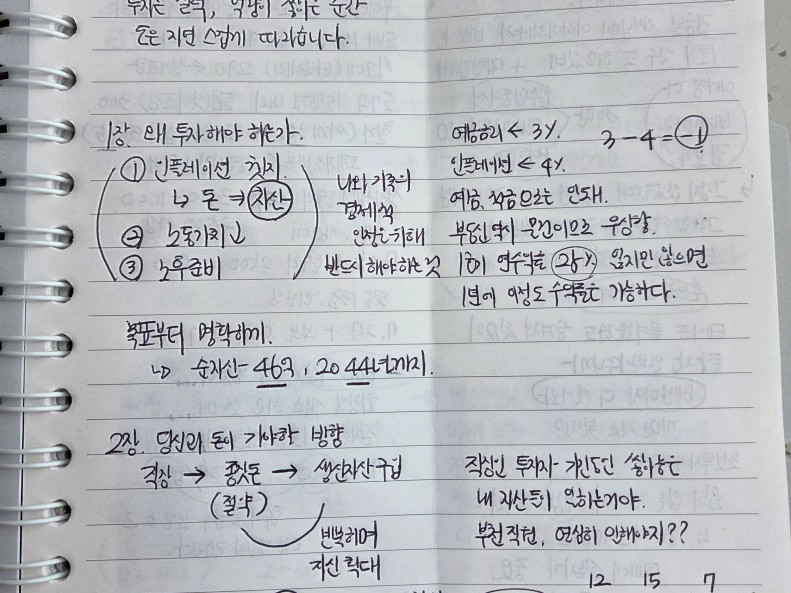 투자는 절약,
돈은 자연스럽게 따라옵니다.
1장. 왜 투자해야 하는가.
① 인플레이션 헷지
↳ 돈 ⇒ 자산
② 노동가치↓
③ 노후준비
나와 가족의
경제적
안정을 위해
반드시 해야하는 것
예금금리 ← 3%.
3 - 4 = -1
인플레이션 ← 4%.
예금, 적금으로는 안돼.
부동산 역시 물건이므로 우상향.
연수익률 잃지만 않으면
1년에 이정도 수익률은 가능하다.
목표부터 명확하게.
↳ 순자산- 46억, 2044년까지.
2장. 당신과 돈이 가야할 방향
직장 → 종잣돈 → 생산자산 구입
(절약)
반복하며
자산 확대
직장인 투자자-
내 자산들이 일하는거야.
열심히 일해야지??
12 15 7